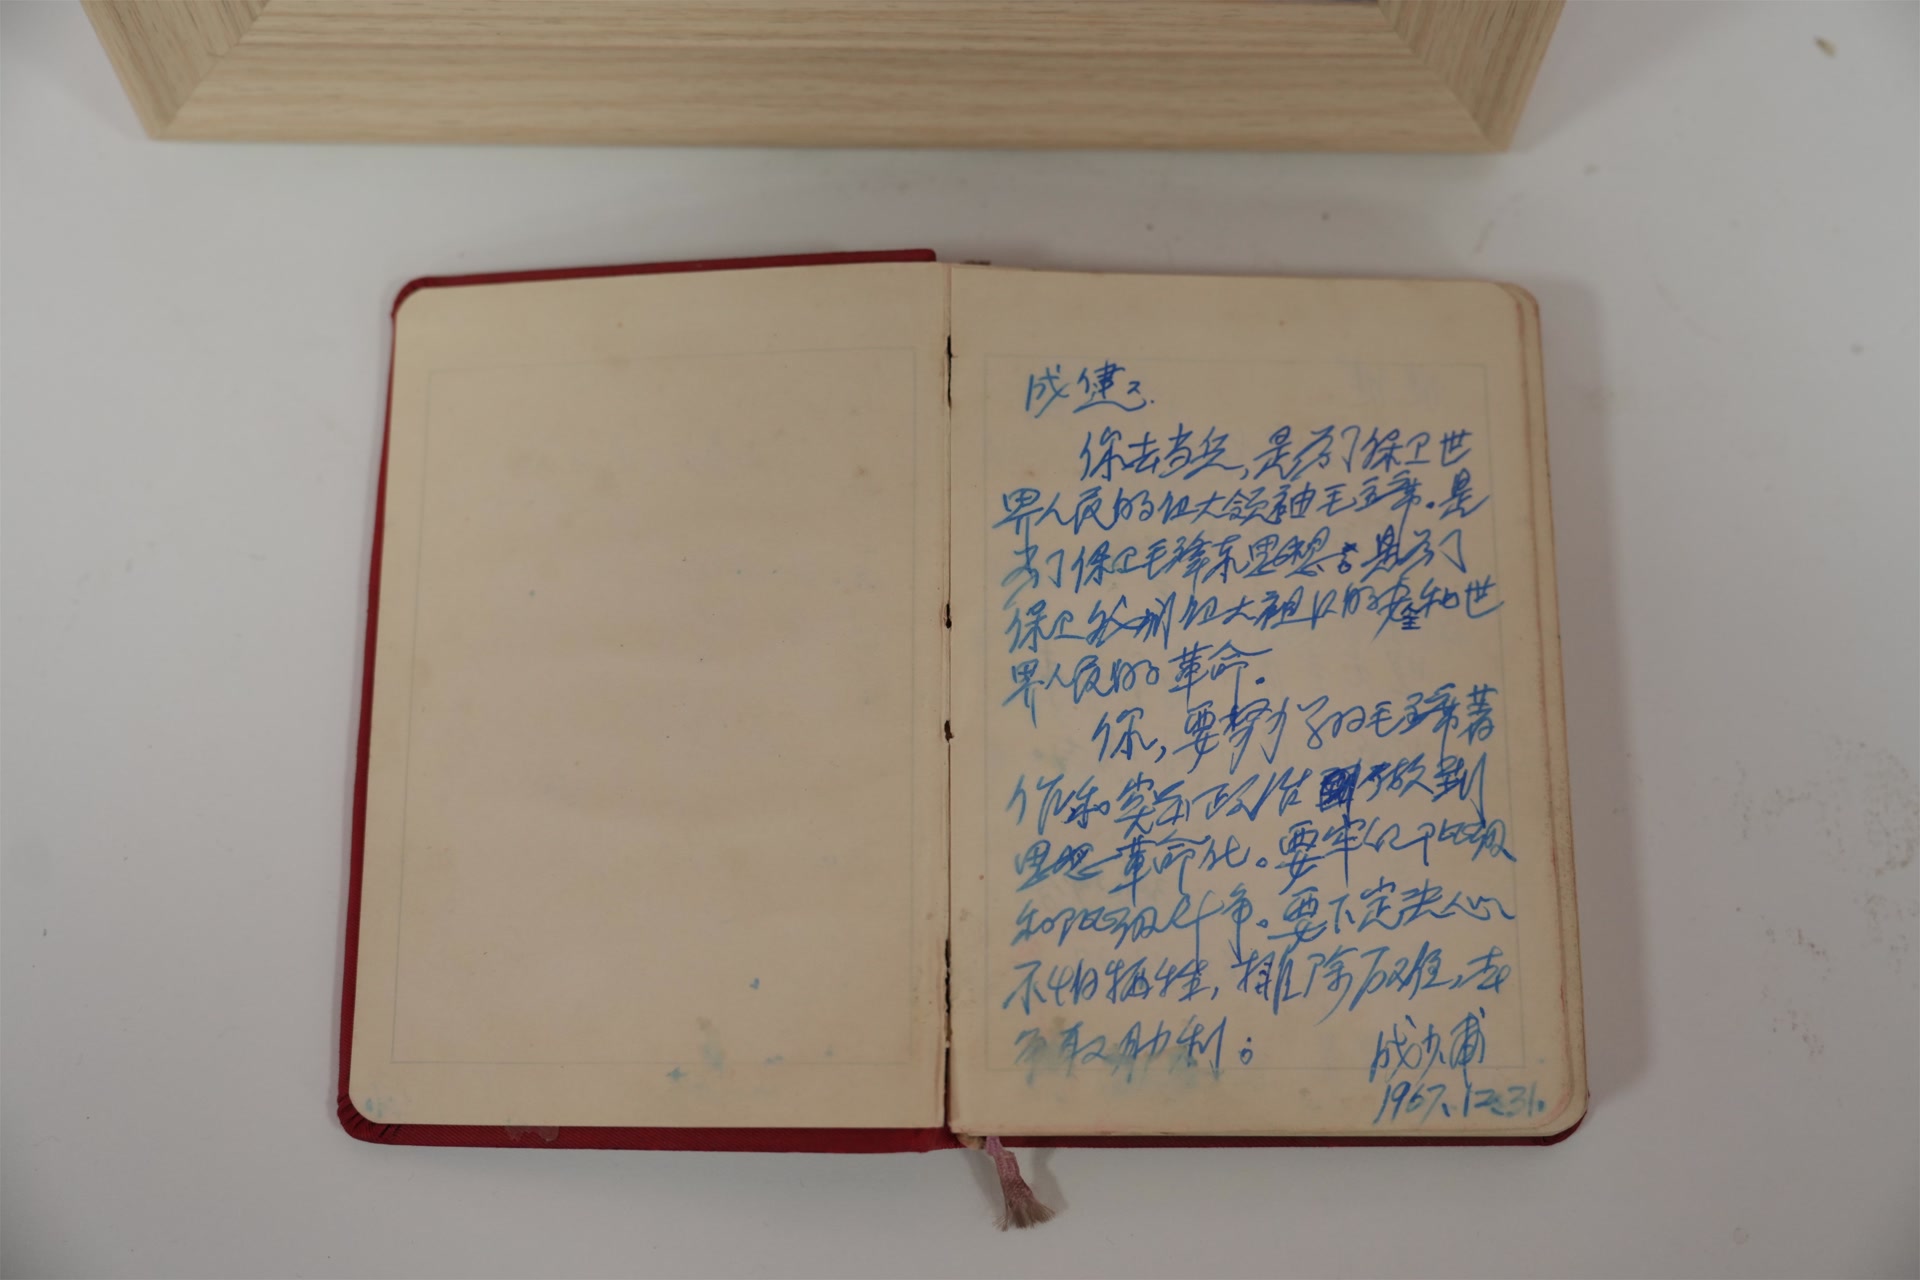 成健:
你去当兵,是为了保卫世
界人民的伟大领袖毛主席。是
为了保卫毛泽东思想。是为了
保卫我们伟大祖国的安全和世
界人民的革命。
你,要努力学习毛主席著
作和突出政治 做到
思想革命化。要牢记阶级
和阶级斗争。要下定决心
不怕牺牲,排除万难,去
争取胜利。
成 甫
1967.12.31.